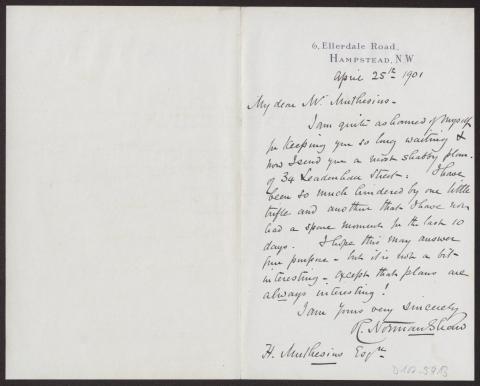 6, Ellerdale Road,
Hampstead, N.W
April 25th 1901
My dear Mr. Muthesius -
I am quite ashamed of myself
for keeping you so long waiting &
now I send you a most shabby plan
of 34 Leadenhall Street: I have
been so much hindered by one little
trifle and another that I have not
had a spare moment for the last 10
days. I hope this may answer
your purpose - but it is not a bit
interesting - except that plans are
always interesting!
I am Yours very sincerely
R. Norman Shaw
H. Muthesius Esqre